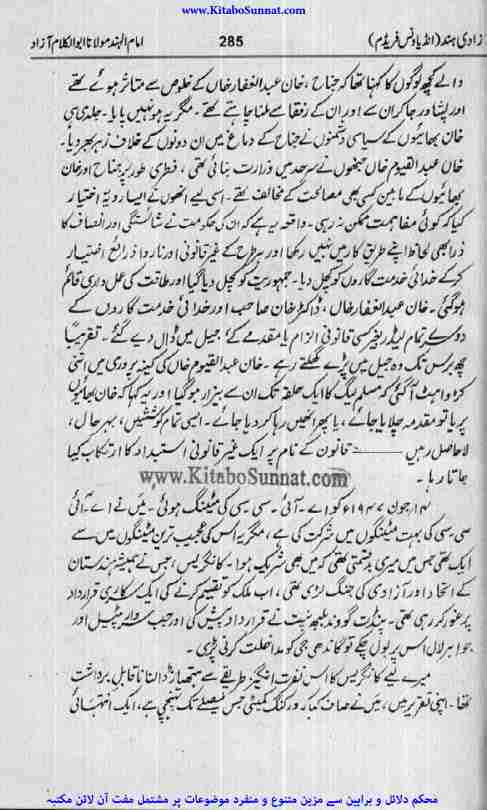 www.KitaboSunnat.com
زادی ہند (انڈیا ونس فریڈم)
285
امام الہند مولانا ابوالکلام آزاد
والے کچھ لوگوں کا کہنا تھا کہ جناح، خان عبدالغفار خاں کے خلوص سے متاثر ہوئے تھے
اور پشاور جا کر ان سے اور ان کے رفقا سے ملنا چاہتے تھے۔ مگر یہ ہو نہیں پایا۔ جلد ہی
خان بھائیوں کے سیاسی دشمنوں نے جناح کے دماغ میں ان دونوں کے خلاف زہر بھر دیا۔
خان عبدالقیوم خاں جنھوں نے سرحد میں وزارت بنائی تھی، فطری طور پر جناح اور خان
بھائیوں کے مابین کسی بھی مصالحت کے مخالف تھے۔ اسی لیے انھوں نے ایسا رویہ اختیار
کیا کہ کوئی مفاہمت ممکن نہ رہی۔ واقعہ یہ ہے کہ ان کی حکومت نے شائستگی اور انصاف کا
ذرا بھی لحاظ اپنے طریق کار میں نہیں رکھا اور ہر طرح کے غیر قانونی اور ناروا ذرائع اختیار
کرکے خدائی خدمت گاروں کو کچل دیا۔ جمہوریت کو کچل دیا گیا اور طاقت کی عمل داری قائم
ہو گئی۔ خان عبدالغفار خاں، ڈاکٹر خان صاحب اور خدائی خدمت گاروں کے
دوسرے تمام لیڈر بغیر کسی قانونی الزام یا مقدمے کے جیل میں ڈال دیے گئے۔ تقریباً
چھ برس تک وہ جیل میں پڑے گھلتے رہے۔ خان عبدالقیوم خاں کی کینہ پروری میں اتنی
کڑواہٹ آ گئی کہ مسلم لیگ کا ایک حلقہ تک ان سے بیزار ہو گیا اور یہ کہا کہ خان بھائیوں
پر یا تو مقدمہ چلایا جائے، یا پھر انھیں رہا کر دیا جائے۔ ایسی تمام کوششیں، بہر حال،
لاحاصل رہیں ــــــ قانون کے نام پر ایک غیر قانونی استبداد کا ارتکاب کیا
جاتا رہا۔
www.KitaboSunnat.com
۱۴ جون ۱۹۴۷ء کو اے۔ آئی۔ سی سی کی میٹنگ ہوئی۔ میں نے اے۔ آئی
سی۔ سی کی بہت میٹنگوں میں شرکت کی ہے، مگر یہ اس کی عجیب ترین میٹنگوں میں سے
ایک تھی جس میں میری بدقسمتی تھی کہ میں بھی شریک ہوا۔ کانگریس، جس نے ہمیشہ ہندستان
کے اتحاد اور آزادی کی جنگ لڑی تھی، اب ملک کو تقسیم کرنے کی ایک سرکاری قرارداد
پر غور کر رہی تھی۔ پنڈت گووند بلبھ پنت نے قرارداد پیش کی اور جب سردار پٹیل اور
جواہر لال اس پر بول چکے تو گاندھی جی کو مداخلت کرنی پڑی۔
میرے لیے کانگریس کا اس نفرت انگیز طریقے سے ہتھیار ڈالنا ناقابل برداشت
تھا۔ اپنی تقریر میں، میں نے صاف کہا کہ ورکنگ کمیٹی جس فیصلے تک پہنچی ہے، ایک انتہائی
محکم دلائل و براہین سے مزین متنوع و منفرد موضوعات پر مشتمل مفت آن لائن مکتبہ